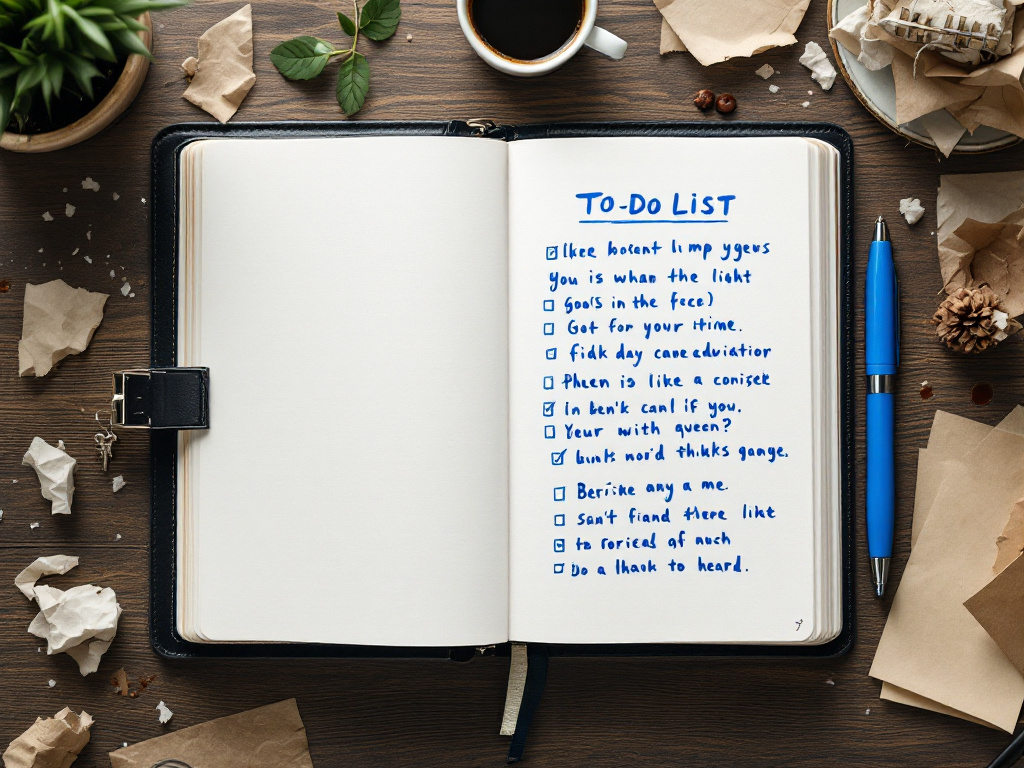 TO-DO LIST
lkee bosent limp ygeus
You is whan the light
Goo(s in the fece)
Got for your itime.
fidk day caneadviatior
Pheen is like a conisek
In ben'k canl if you.
Yeur with queen?
nord thikks gange.
Berike any a me.
San't fiand there like
to of nuch
Do a lhaok to heard.